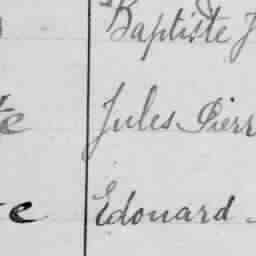 Baptiste J
te Jules Pierr
e Edouard